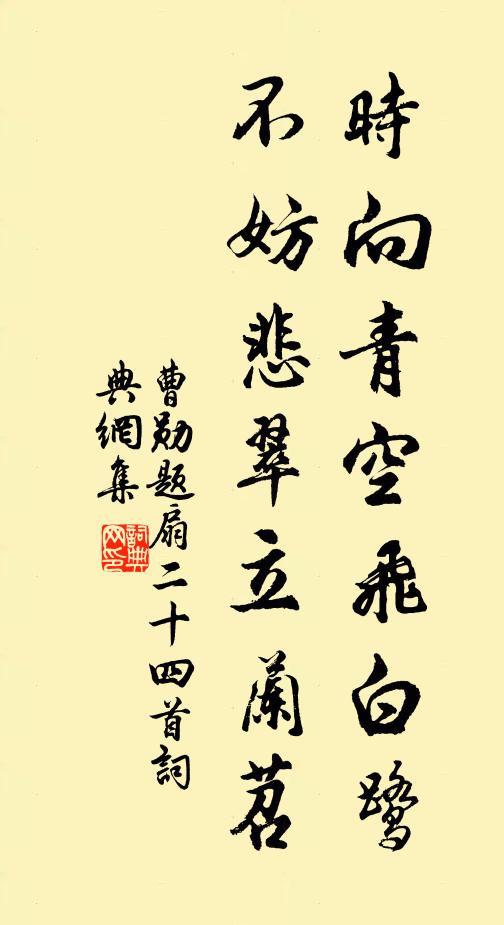 時向青空飛白鷺
不妨悲翠立蘭苕
曹勛題扇二十四首詞
典網集
詞典網印